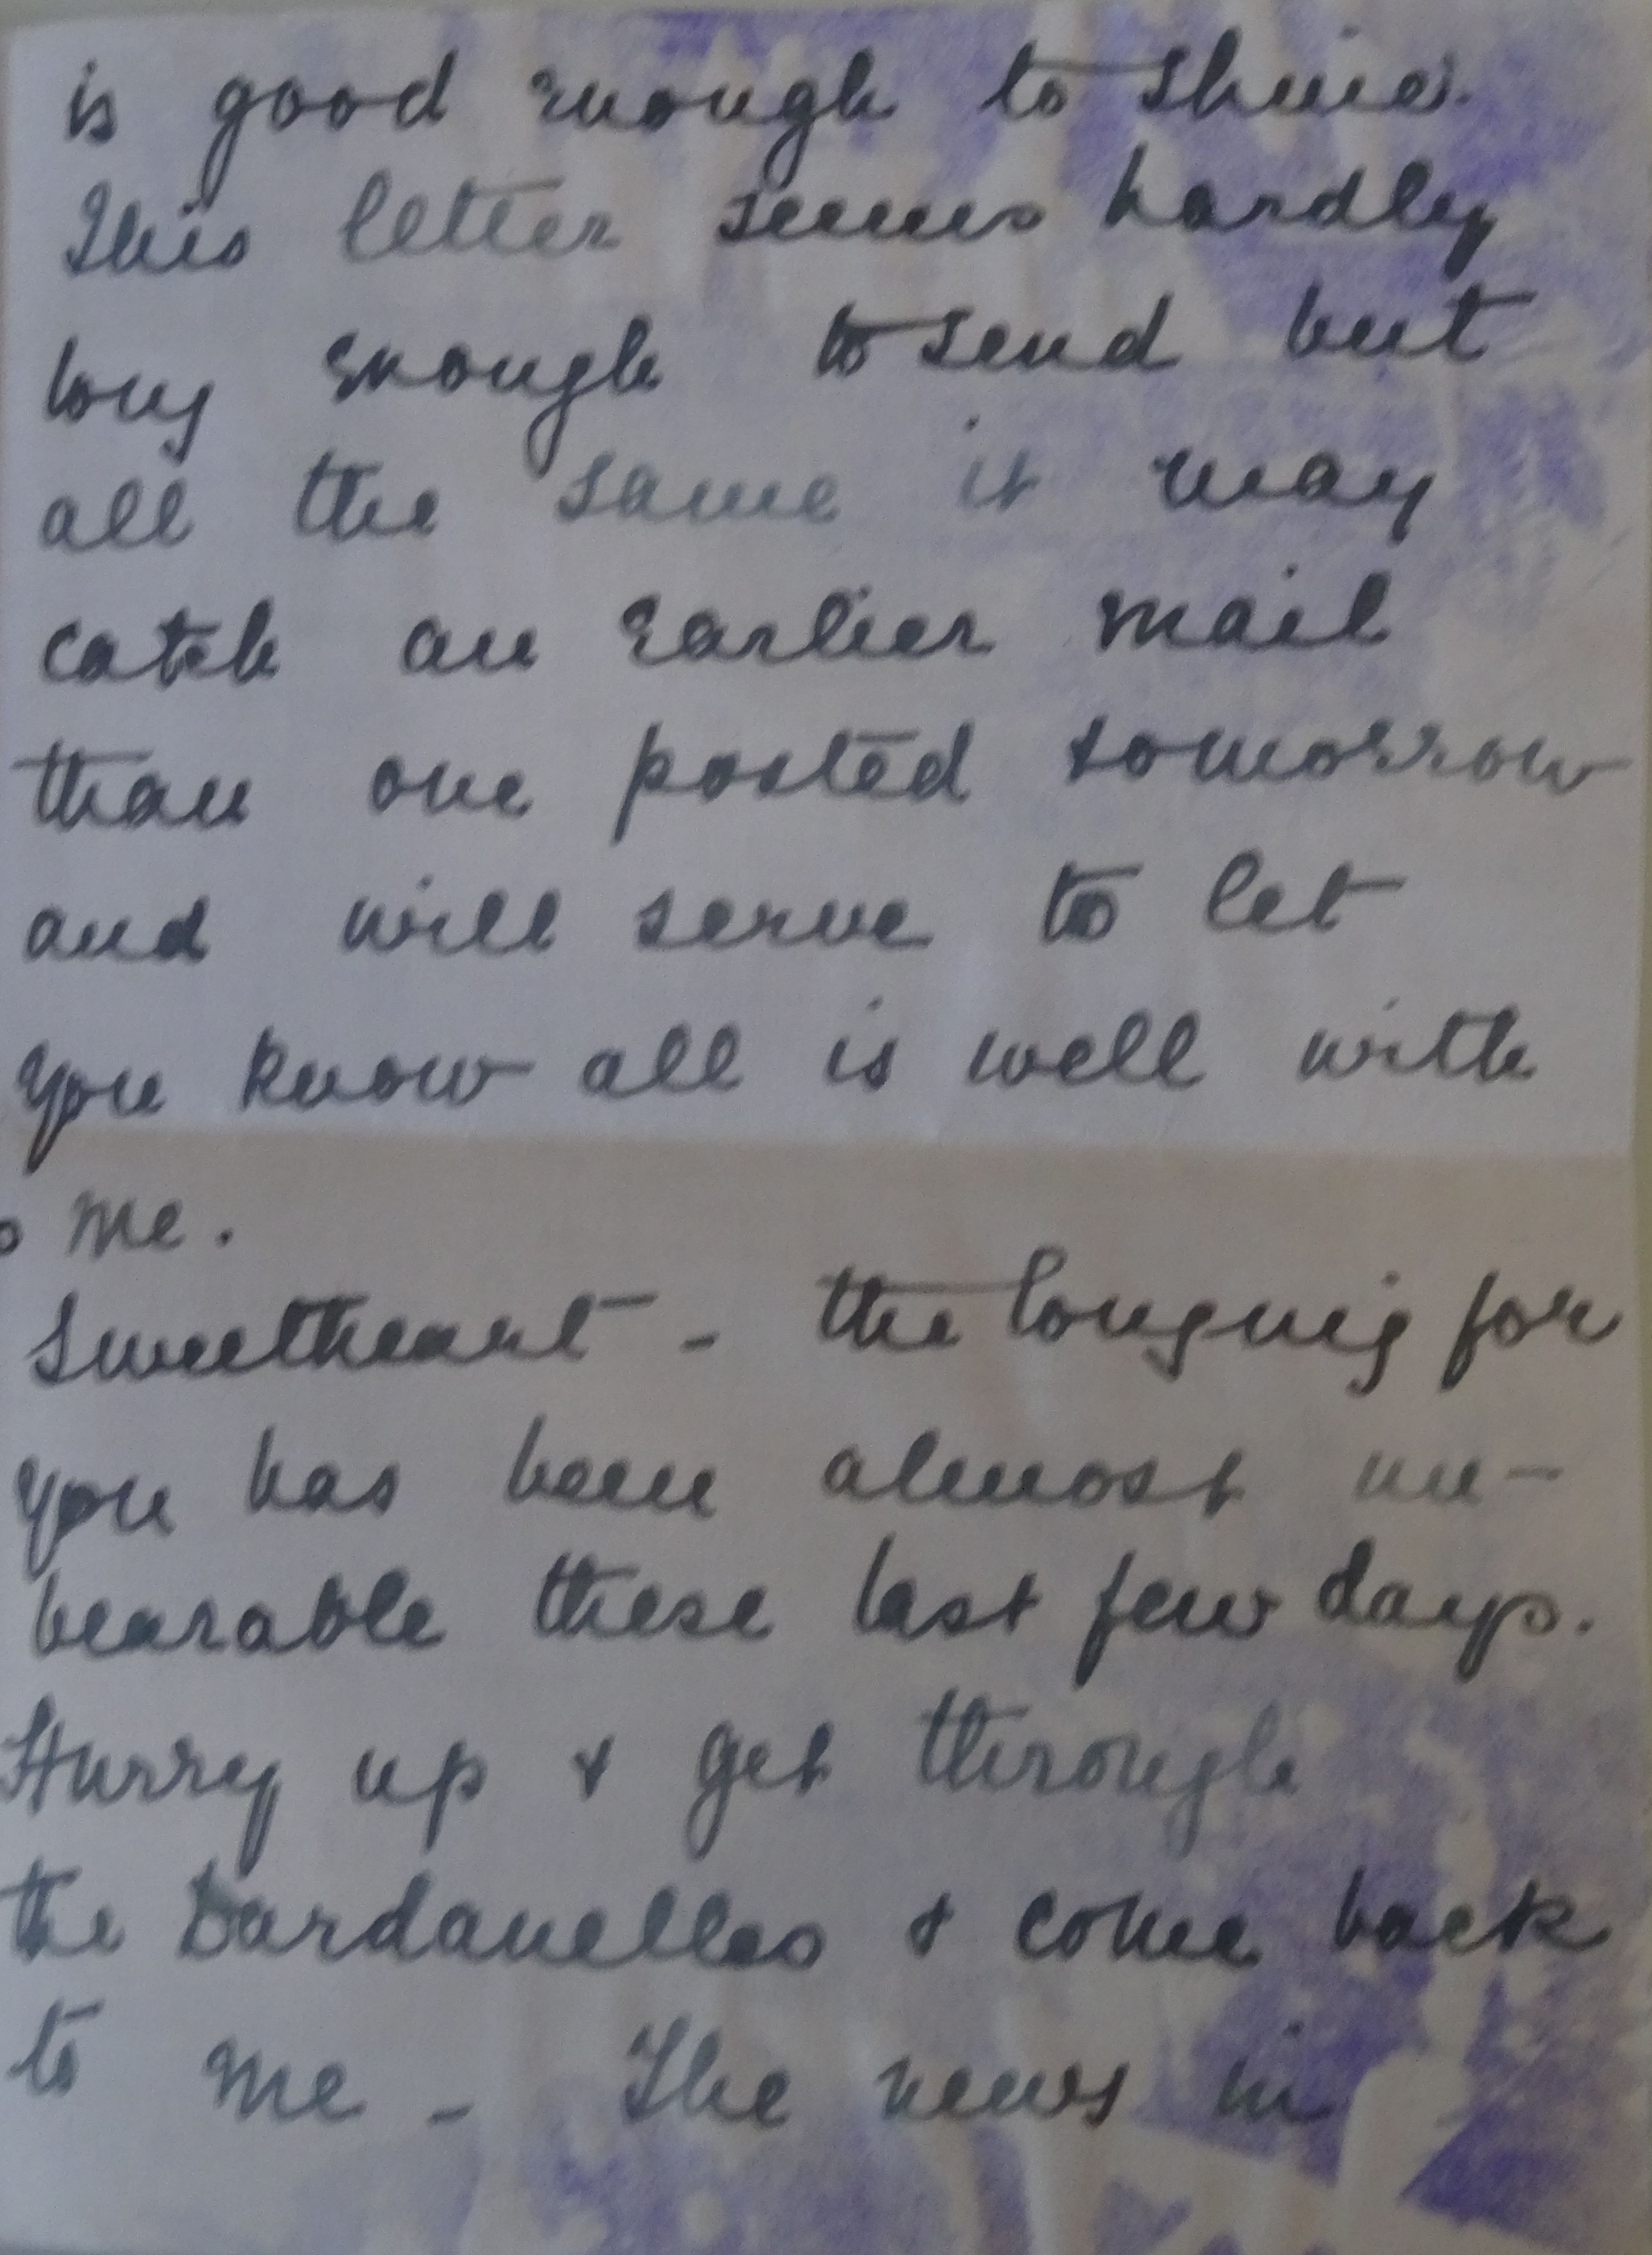 is good enough to shine.
This letter seems hardly
long enough to send but
all the same it may
catch an earlier mail
than one posted tomorrow
and will serve to let
you know all is well with
me.
Sweetheart - the longing for
you has been almost un-
bearable these last few days.
Hurry up & get through
the Dardanelles & come back
to me - The news in